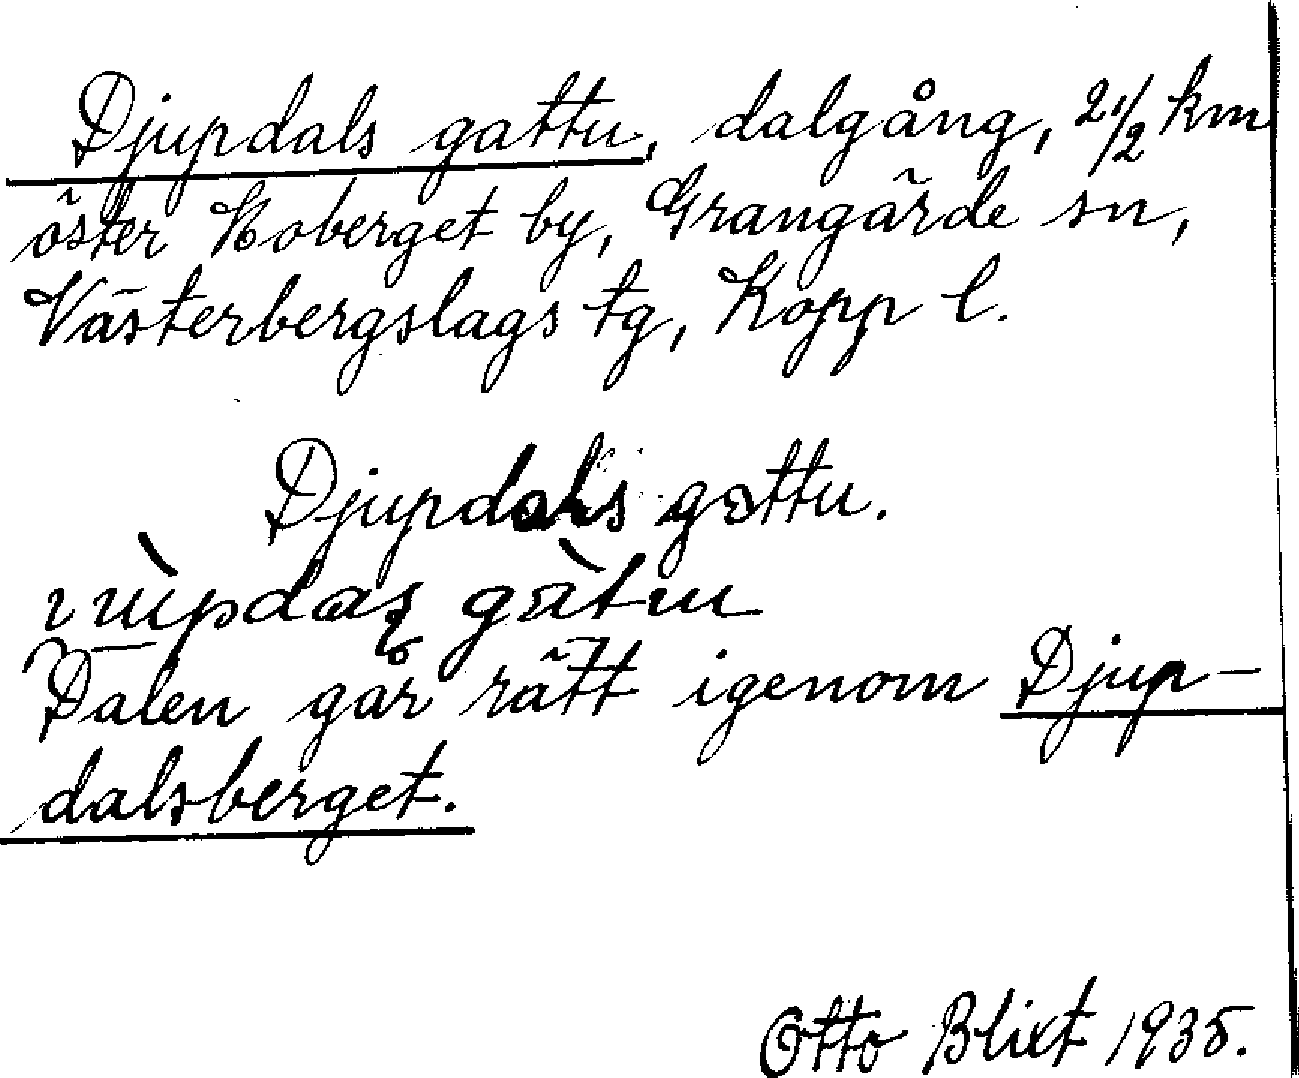 Djupdals gattu, dalgång, 2 1/2 km
öster Hoberget by, Grangärde sn,
Västerbergslags tg, Kopp l.
Djupdals gattu.
Dalen går rätt igenom Djup-
dalsberget.
Otto Blixt 1935.